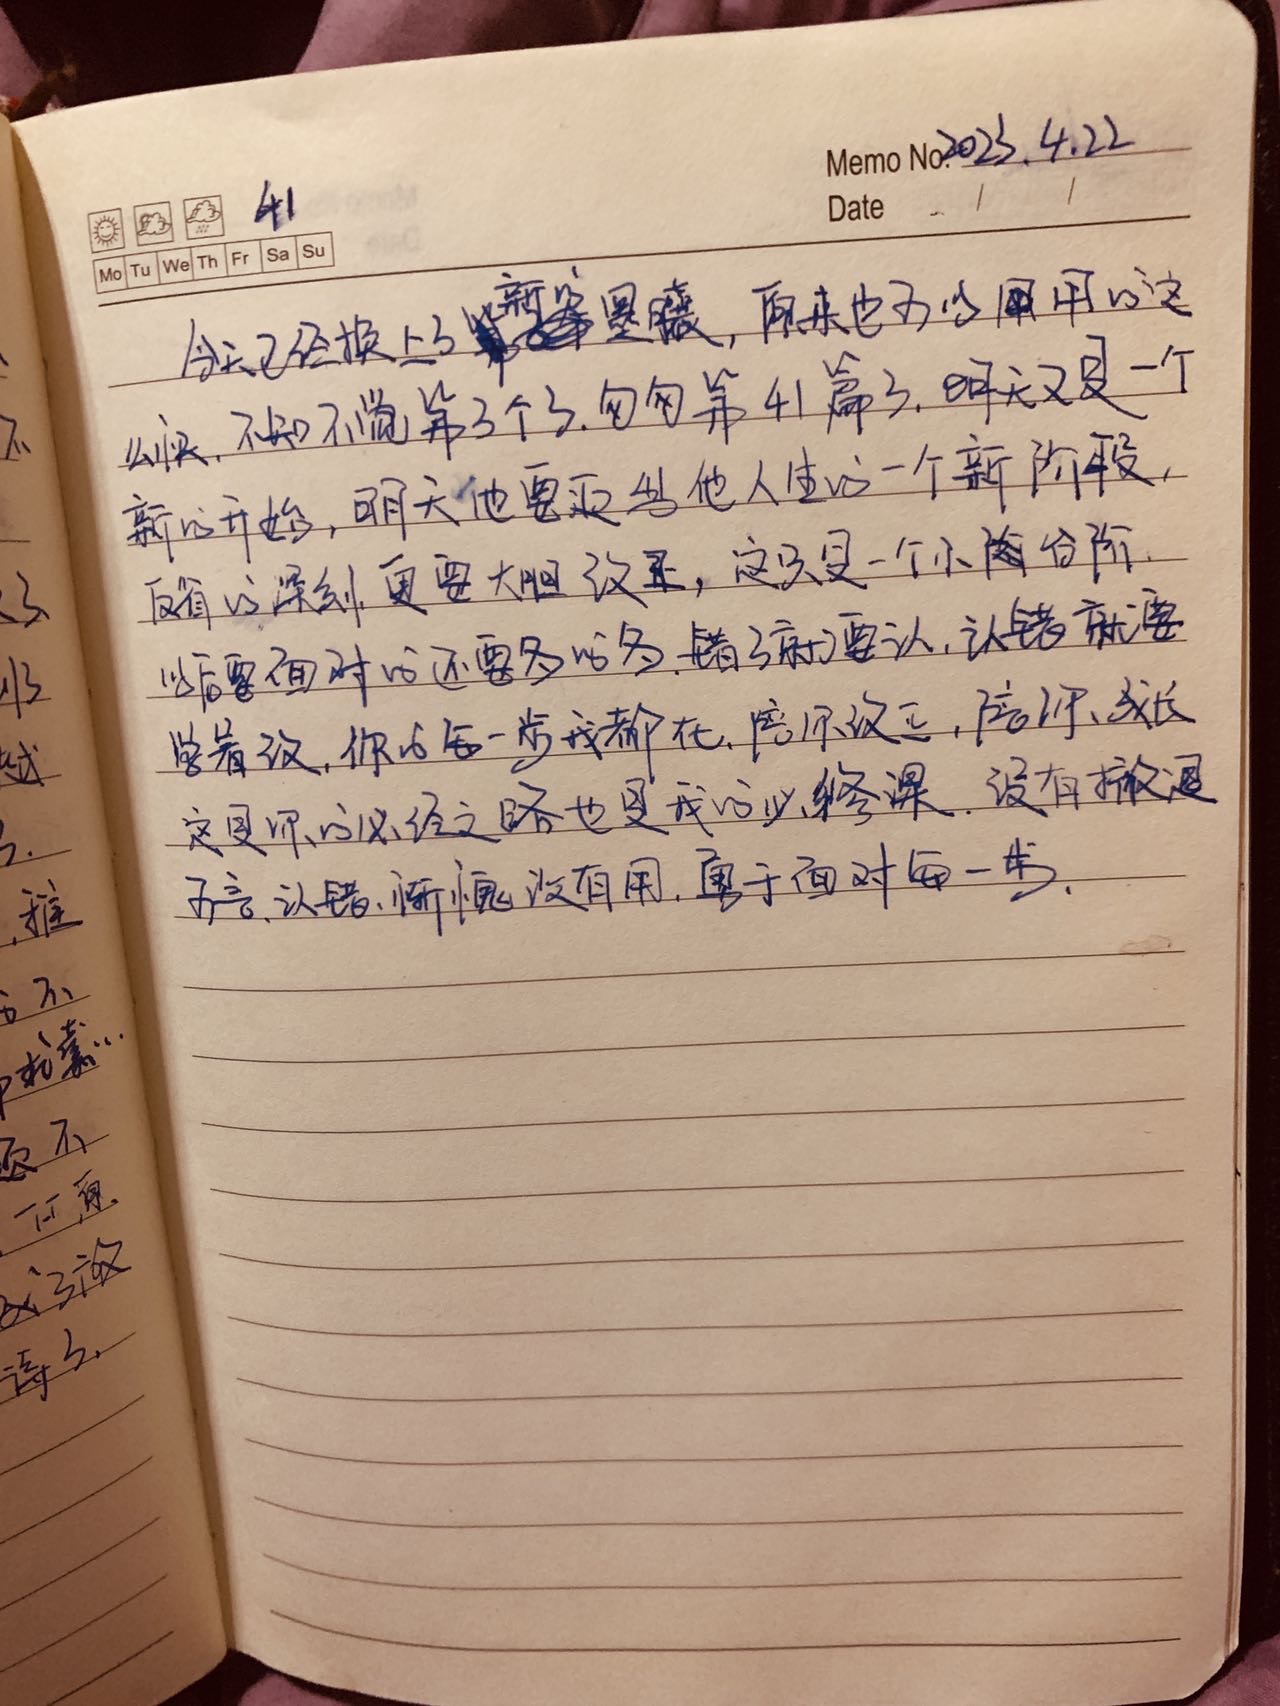 41
Memo No. 2023.4.22
Date / /
Mo Tu We Th Fr Sa Su
今天已经换上了新的墨囊，原来也可以用的这
么快，不知不觉第3个了，匆匆第41篇了，明天又是一个
新的开始，明天他要面对他人生的一个新阶段，
反省的深刻，更要大胆改正，这只是一个小台阶
以后要面对的还要多的多，错了就要认，认错就要
学着改，你的每一步我都在，陪你改正，陪你成长
这是你的必经之路也是我的必修课，没有撤退
可言，认错、惭愧没有用，勇于面对每一步，